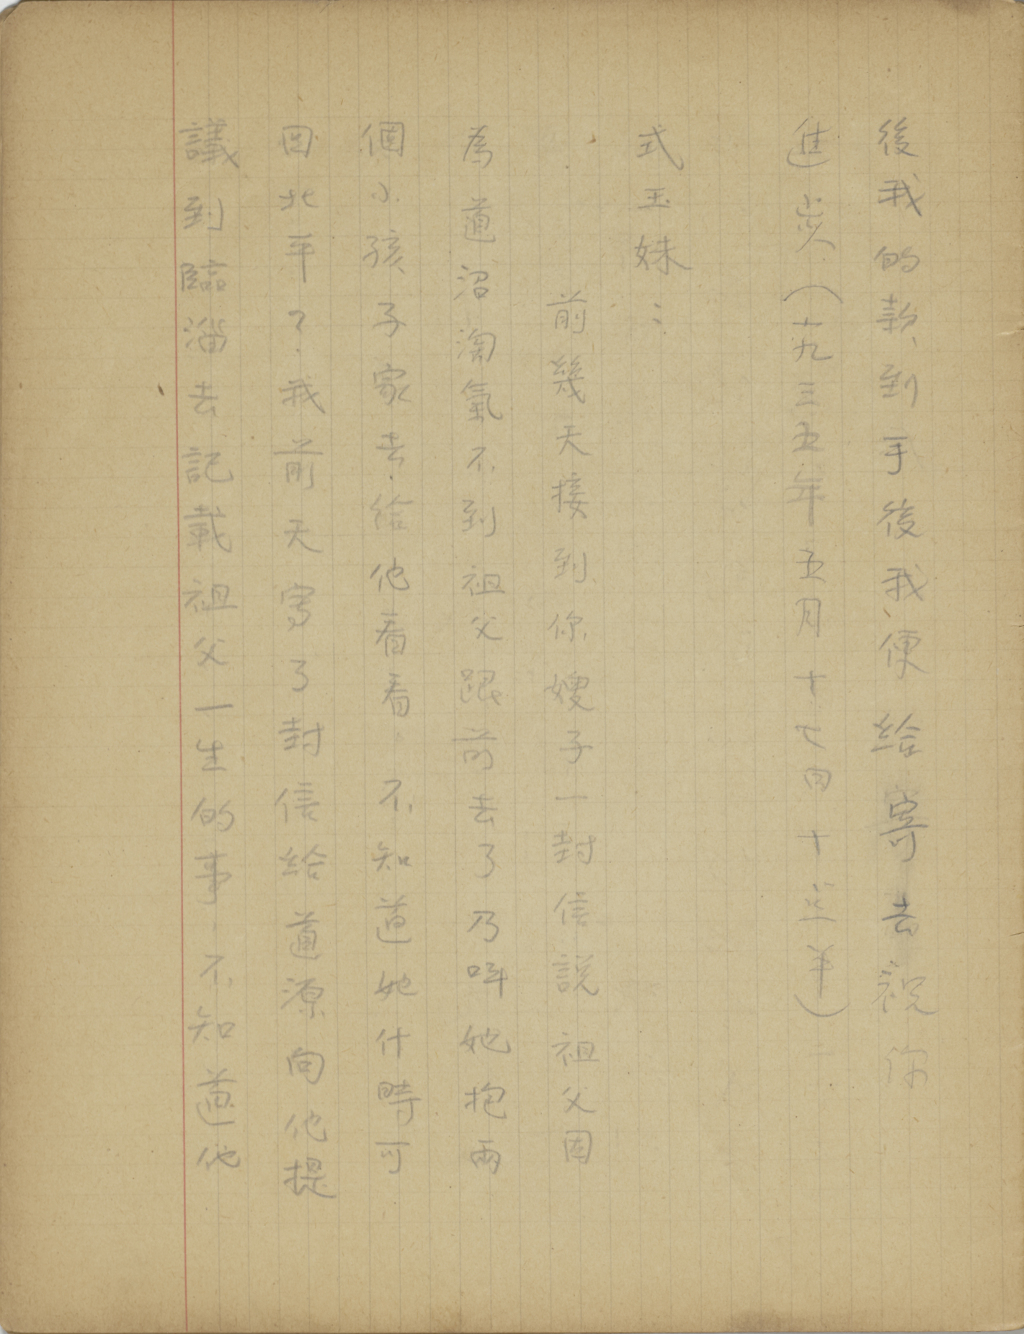 後我的款到手後我便給寄去祝你
進炎(一九三五年五月十七日十二半)
式玉妹:
前幾天接到你嫂子一封信說祖父因
為道沼淘氣不到祖父跟前去了乃叫她抱兩
個小孩子家去給他看看.不知道她什時可
回北平?我前天寫了封信給道源向他提
議到臨淄去記載祖父一生的事.不知道他